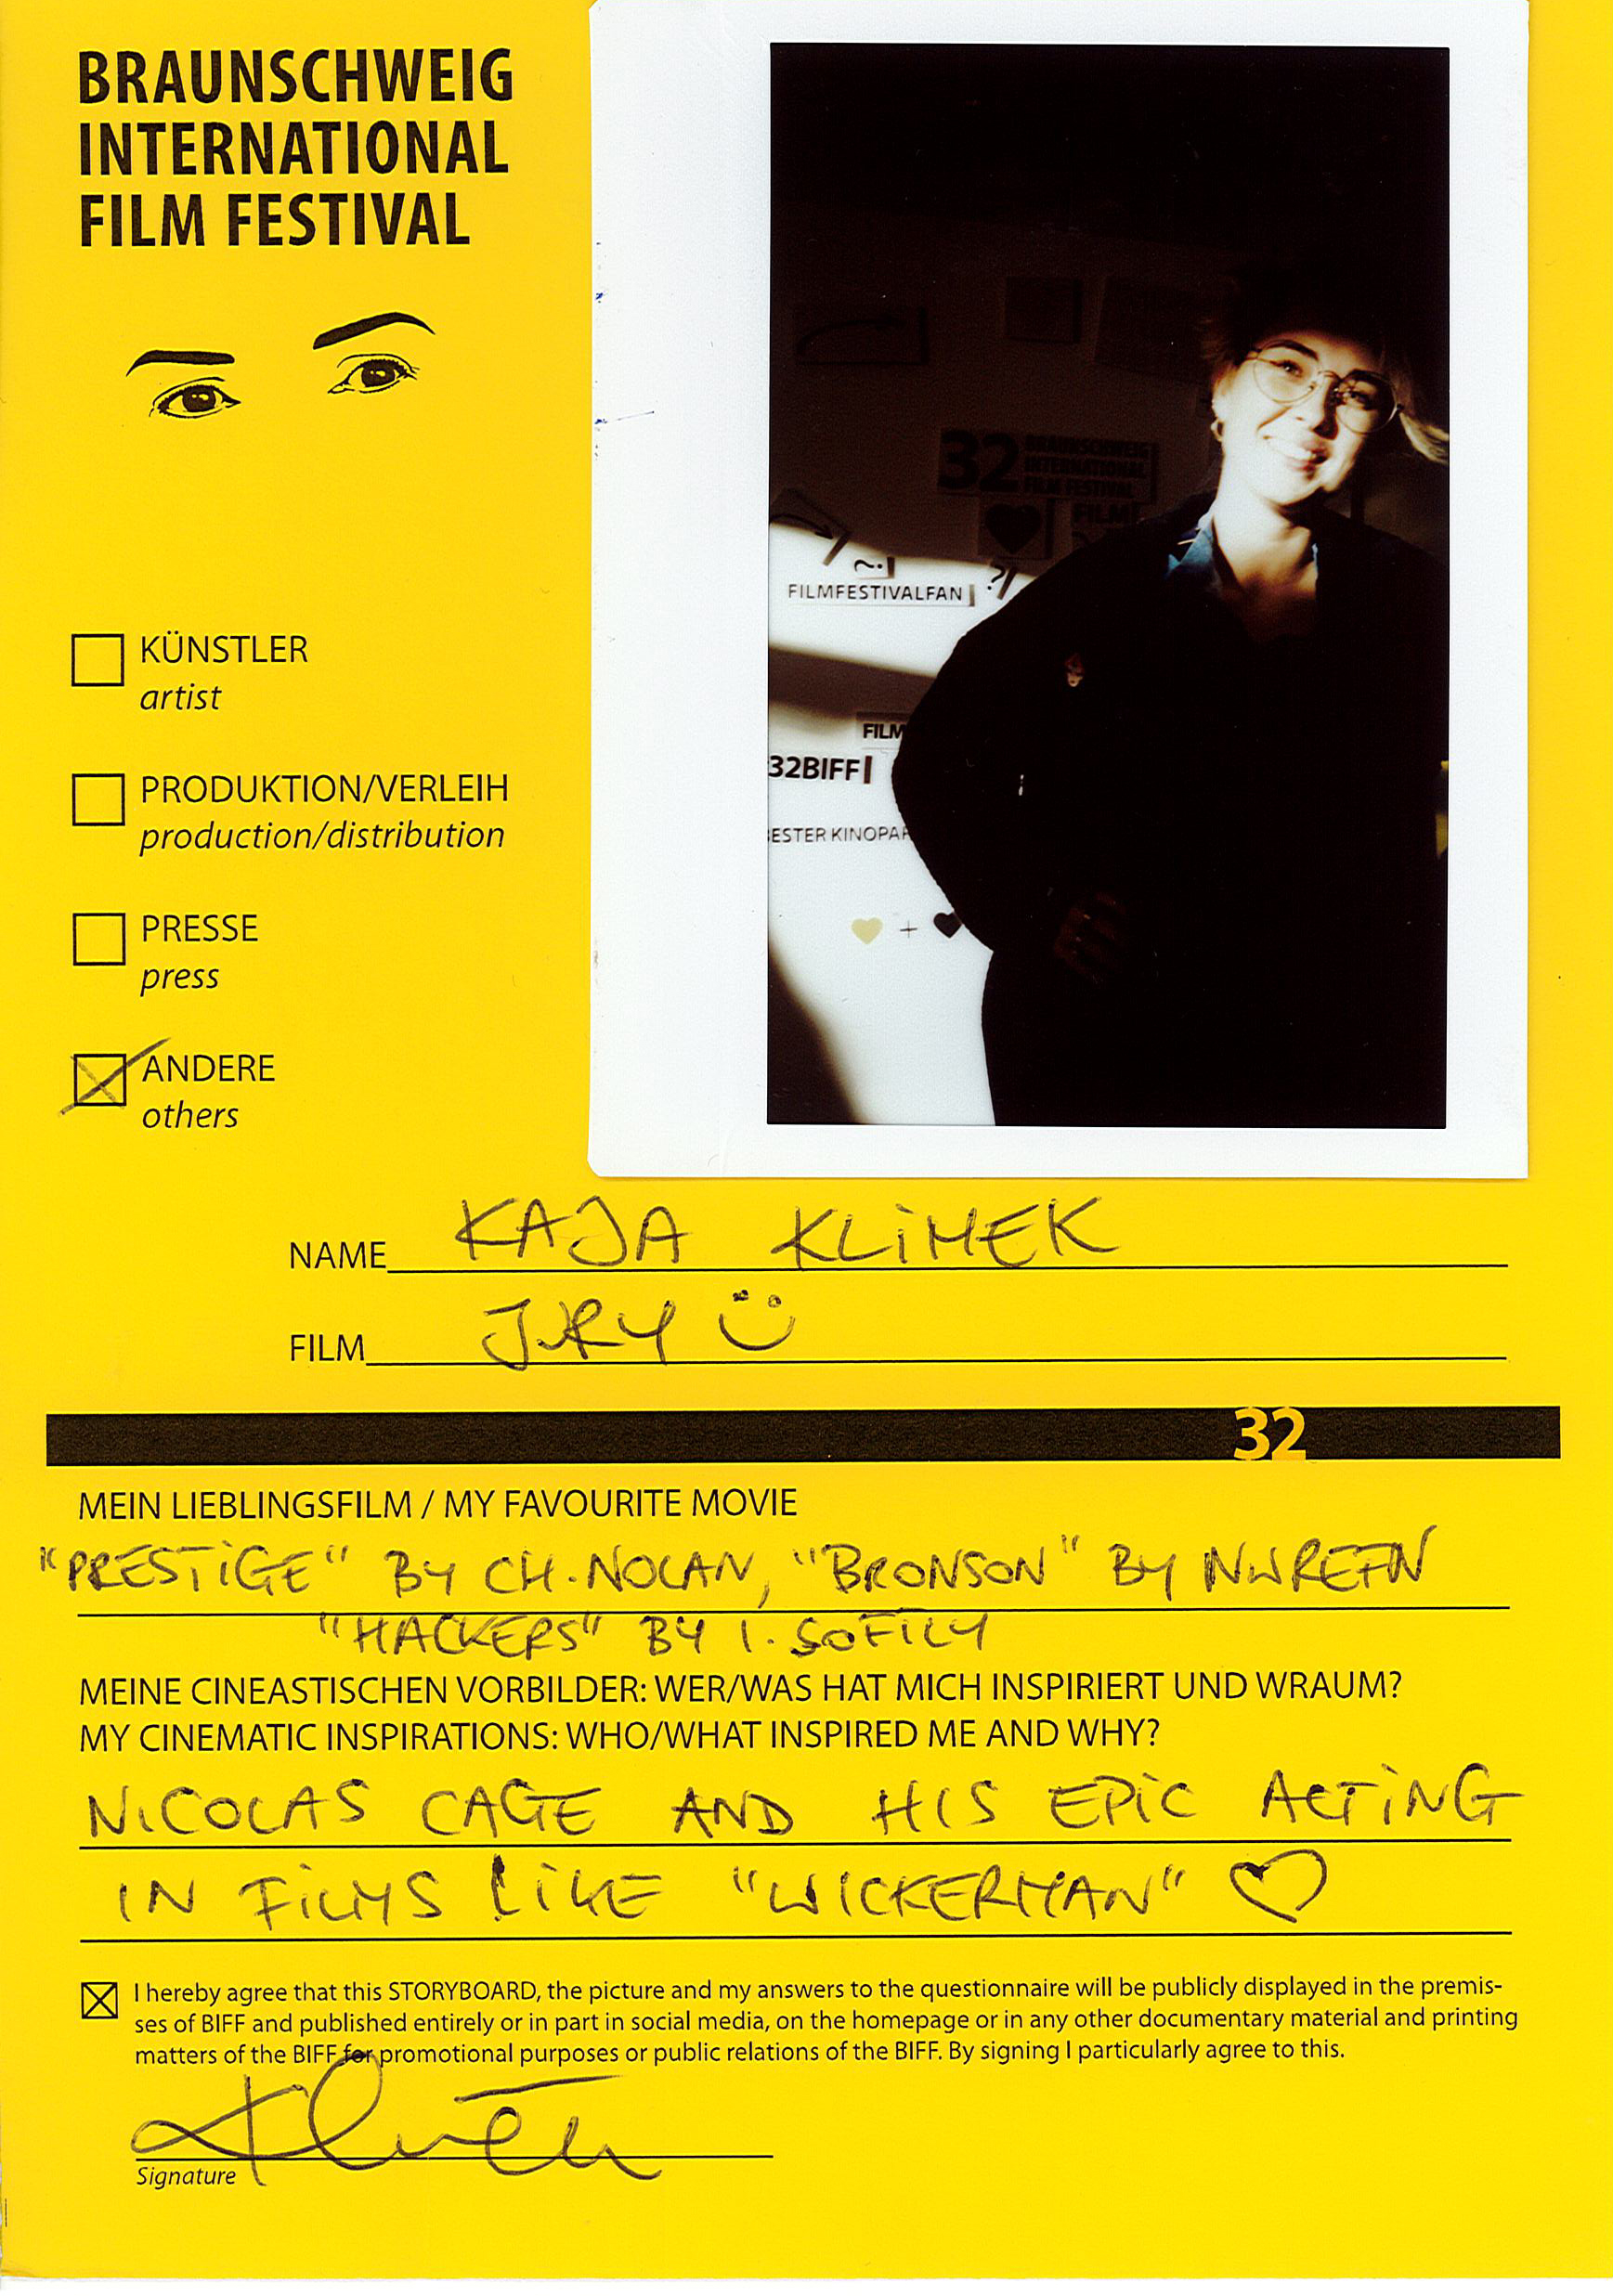 BRAUNSCHWEIG
INTERNATIONAL
FILM FESTIVAL
32 BRAUNSCHWEIG
INTERNATIONAL
FILM FESTIVAL
FILM
?
FILMFESTIVALFAN
FILM
32BIFF
ESTER KINOPA
+
KÜNSTLER
artist
PRODUKTION/VERLEIH
production/distribution
PRESSE
press
ANDERE
others
NAME KAJA KLIMEK
FILM JURY
32
MEIN LIEBLINGSFILM / MY FAVOURITE MOVIE
"PRESTIGE" BY CH. NOLAN, "BRONSON" BY NWREFN
"HACKERS" BY I. SOFTLY
MEINE CINEASTISCHEN VORBILDER: WER/WAS HAT MICH INSPIRIERT UND WRAUM?
MY CINEMATIC INSPIRATIONS: WHO/WHAT INSPIRED ME AND WHY?
NICOLAS CAGE AND HIS EPIC ACTING
IN FILMS LIKE "WICKERMAN" ♡
I hereby agree that this STORYBOARD, the picture and my answers to the questionnaire will be publicly displayed in the premis-
ses of BIFF and published entirely or in part in social media, on the homepage or in any other documentary material and printing
matters of the BIFF for promotional purposes or public relations of the BIFF. By signing I particularly agree to this.
Signature